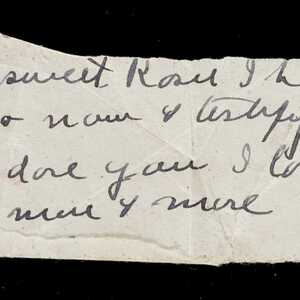 sweet Rosie I h
o now & testify
dore you I lo
more & more